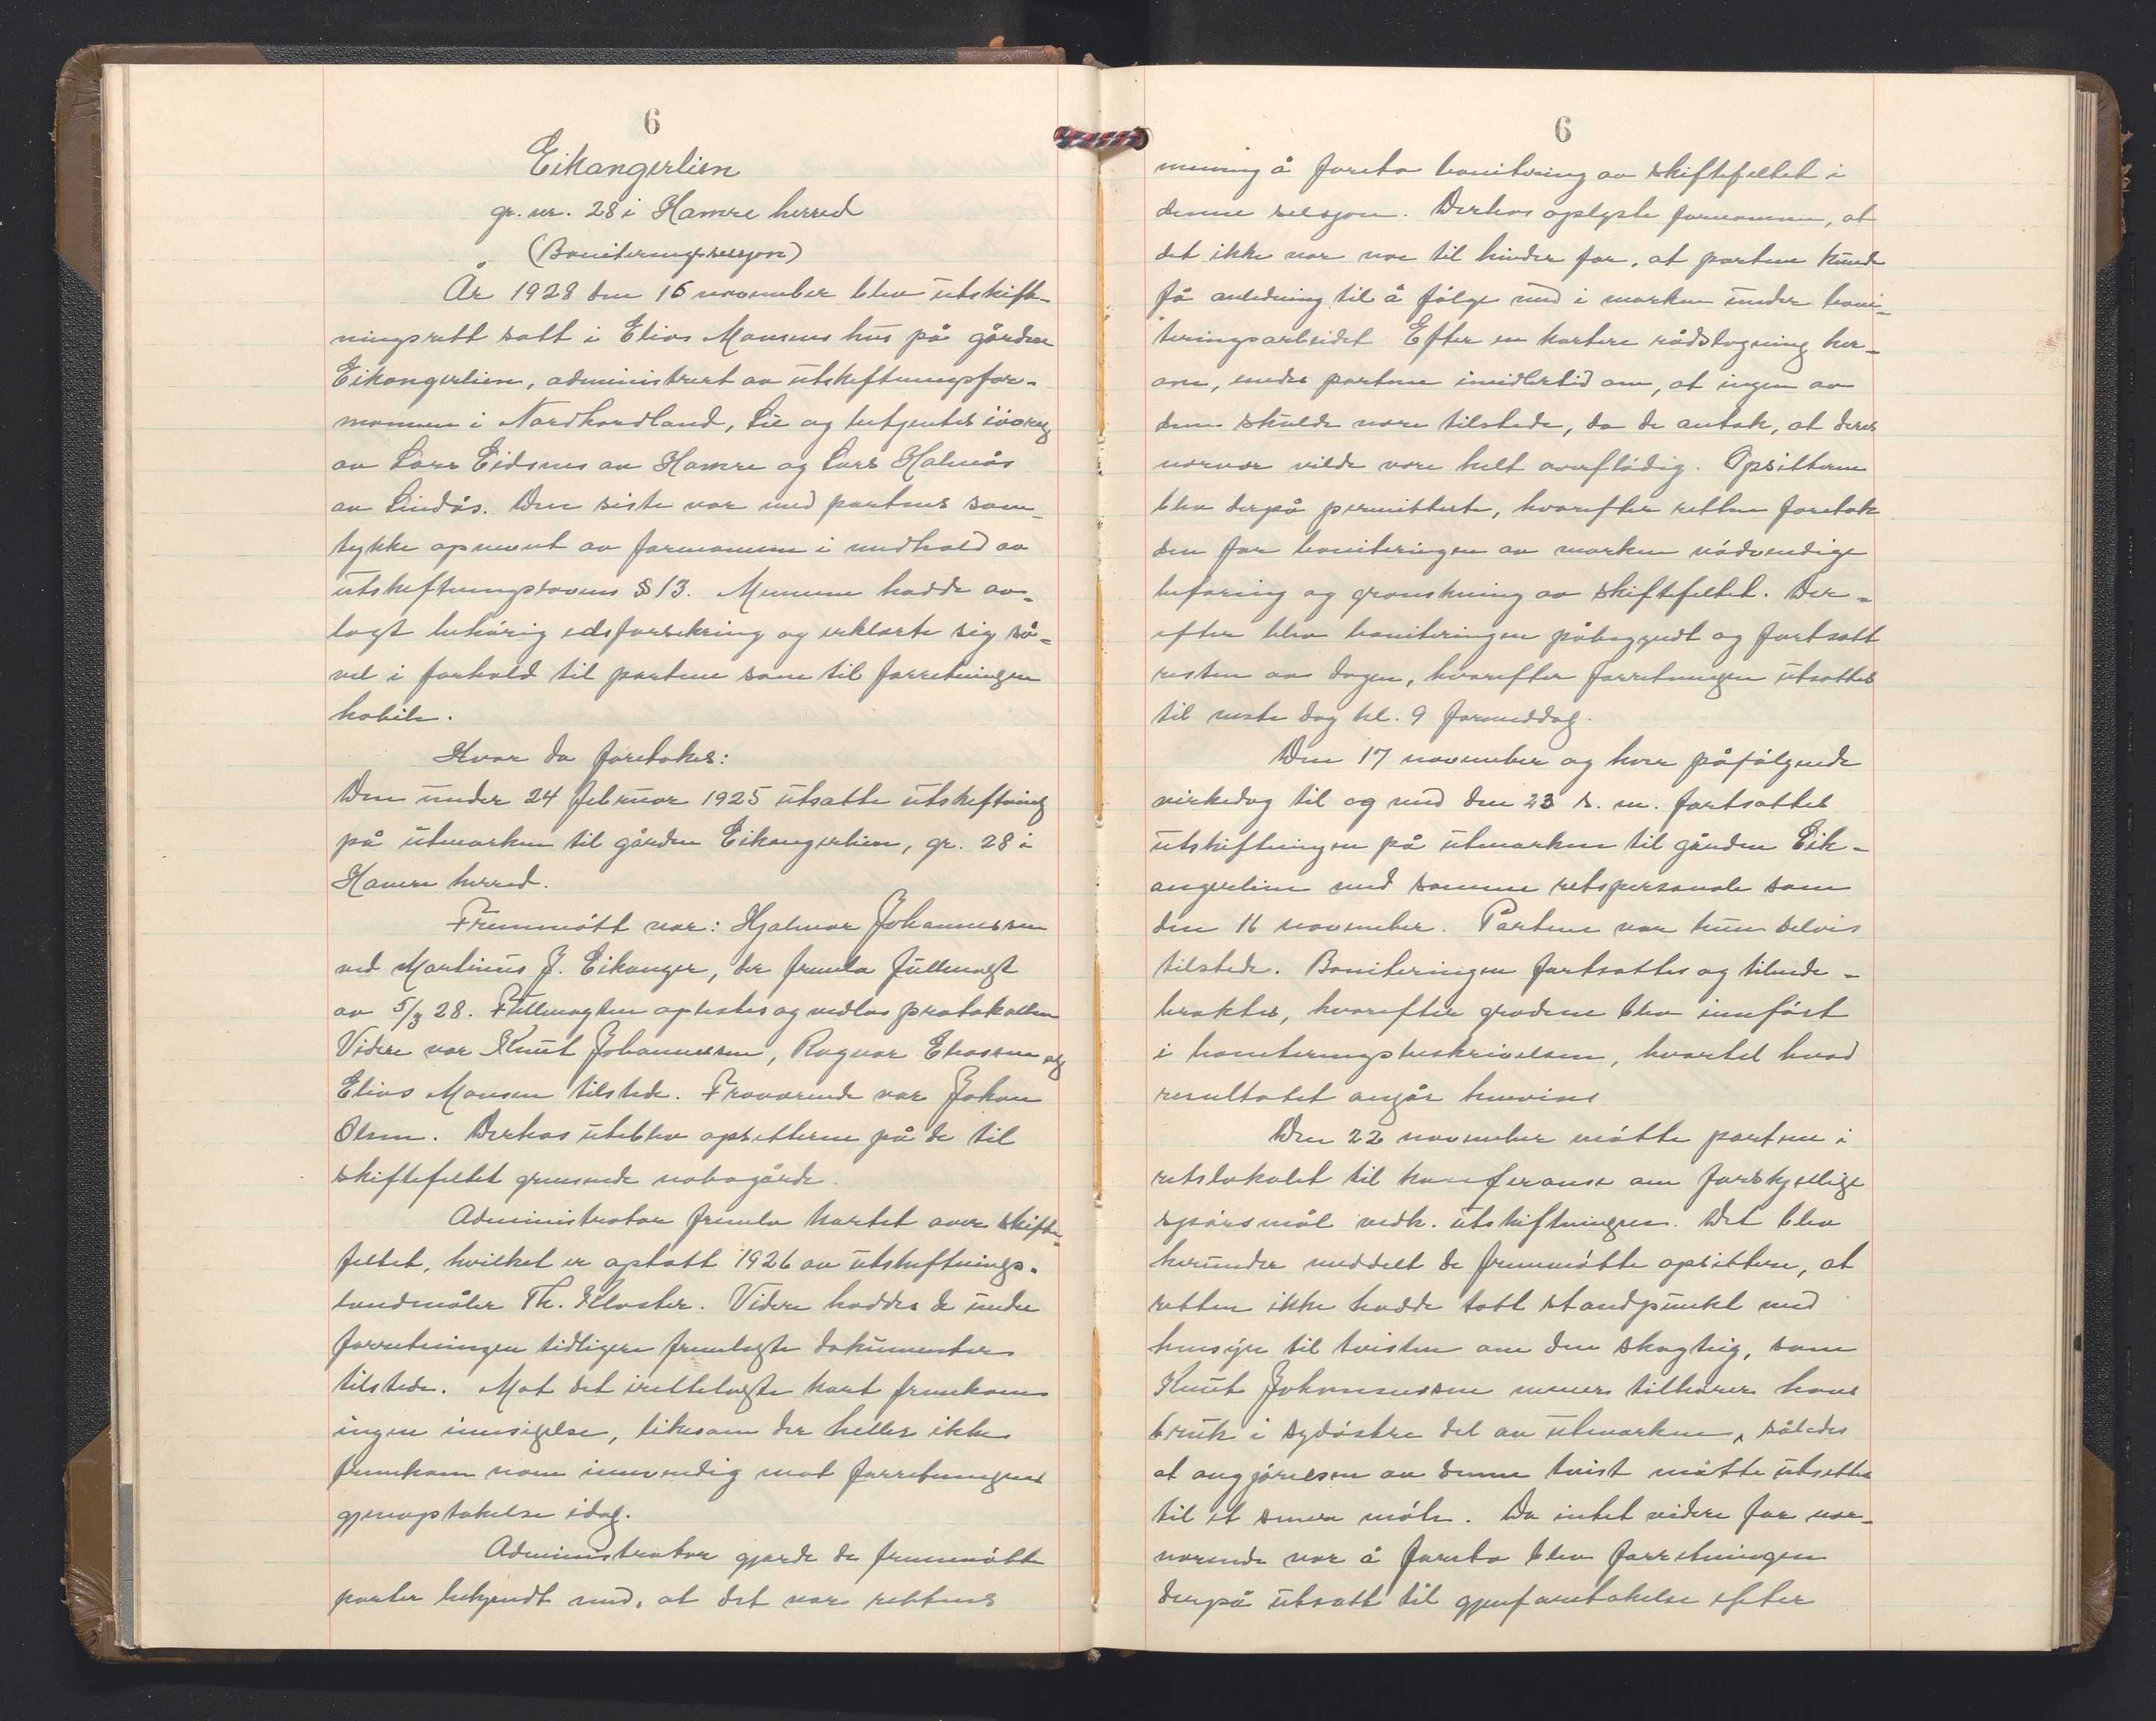 6
Eikangerlien
gr. nr. 28 i Hamre herred
(Boniteringssesjon)
År 1928 den 16 november blev utskift-
ningsrett satt i Elias Monsens hus på gården
Eikangerlien, administrert av utskiftningsfor-
mannen i Nordhordland, Lie og betjentes iøvrig
av Lars Eidsnes av Hamre og Lars Halnås
av Lindås. Den siste var med partenes sam-
tykke opnevnt av formannen i medhold av
utskiftningslovens § 13. Mennene hadde av-
lagt behørig edsforsikring og erklærte sig så-
vel i forhold til partene som til forretningen
habile.
Hvor da foretokes:
Den under 24 februar 1925 utsatte utskiftning
på utmarken til gården Eikangerlien, gr. 28 i
Hamre herred.
Fremmøtt var: Hjalmar Johannessen
ved Martinus J. Eikanger, der fremla fullmagt
av 5/3 28. Fullmagten oplestes og vedlas protokollen
Videre var Knut Johannessen, Ragnar Eliassen og
Elias Monsen tilstede. Fraværende var Johan
Olsen. Derhos uteblev opsitterne på de til
skiftefeltet grensende nabogårde.
Administrator fremla kartet over skifte-
feltet, hvilket er optatt 1926 av utskiftnings-
landmåler Th. Kloster. Videre haddes de under
forretningen tidligere fremlagte dokumenter
tilstede. Mot det irettelagte kart fremkom
ingen innsigelse, likesom der heller ikke
fremkom noen innvending mot forretningens
gjenoptakelse idag.
Administrator gjorde de fremmøtte
parter bekjendt med, at det var rettens
6
mening å foreta bonitering av skiftefeltet i
denne sesjon. Derhos oplyste formannen, at
det ikke var noe til hinder for, at partene kunde
få anledning til å følge med i marken under boni-
teringsarbeidet. Efter en kortere rådslagning her-
om, enedes partene imidlertid om, at ingen av
dem skulde være tilstede, da de antok, at deres
nærvær vilde være helt overflødig. Opsitterne
blev derpå permitterte, hvorefter retten foretok
den for boniteringen av marken nødvendige
befaring og granskning av skiftefeltet. Der-
efter blev boniteringen påbegyndt og fortsatt
resten av dagen, hvorefter forretningen utsattes
til neste dag kl. 9 formiddag.
Den 17 november og hver påfølgende
virkedag til og med den 23 s. m. fortsattes
utskiftningen på utmarken til gården Eik-
angerlien med samme retspersonale som
den 16 november. Partene var kun delvis
tilstede. Boniteringen fortsattes og tilende-
braktes, hvorefter gradene blev innført
i boniteringsbeskrivelsen, hvortil hvad
resultatet angår henvises
Den 22 november møtte partene i
retslokalet til konferanse om forskjellige
spørsmål vedk. utskiftningen. Det blev
herunder meddelt de fremmøtte opsittere, at
retten ikke hadde tatt standpunkt med
hensyn til tvisten om den skogteig, som
Knut Johannessen mener tilhører hans
bruk i sydøstre del av utmarken, således
at avgjørelsen av denne tvist måtte utsettes
til et senere møte. Da intet videre for nær-
værende var å foreta blev forretningen
derpå utsatt til gjenforetakelse efter